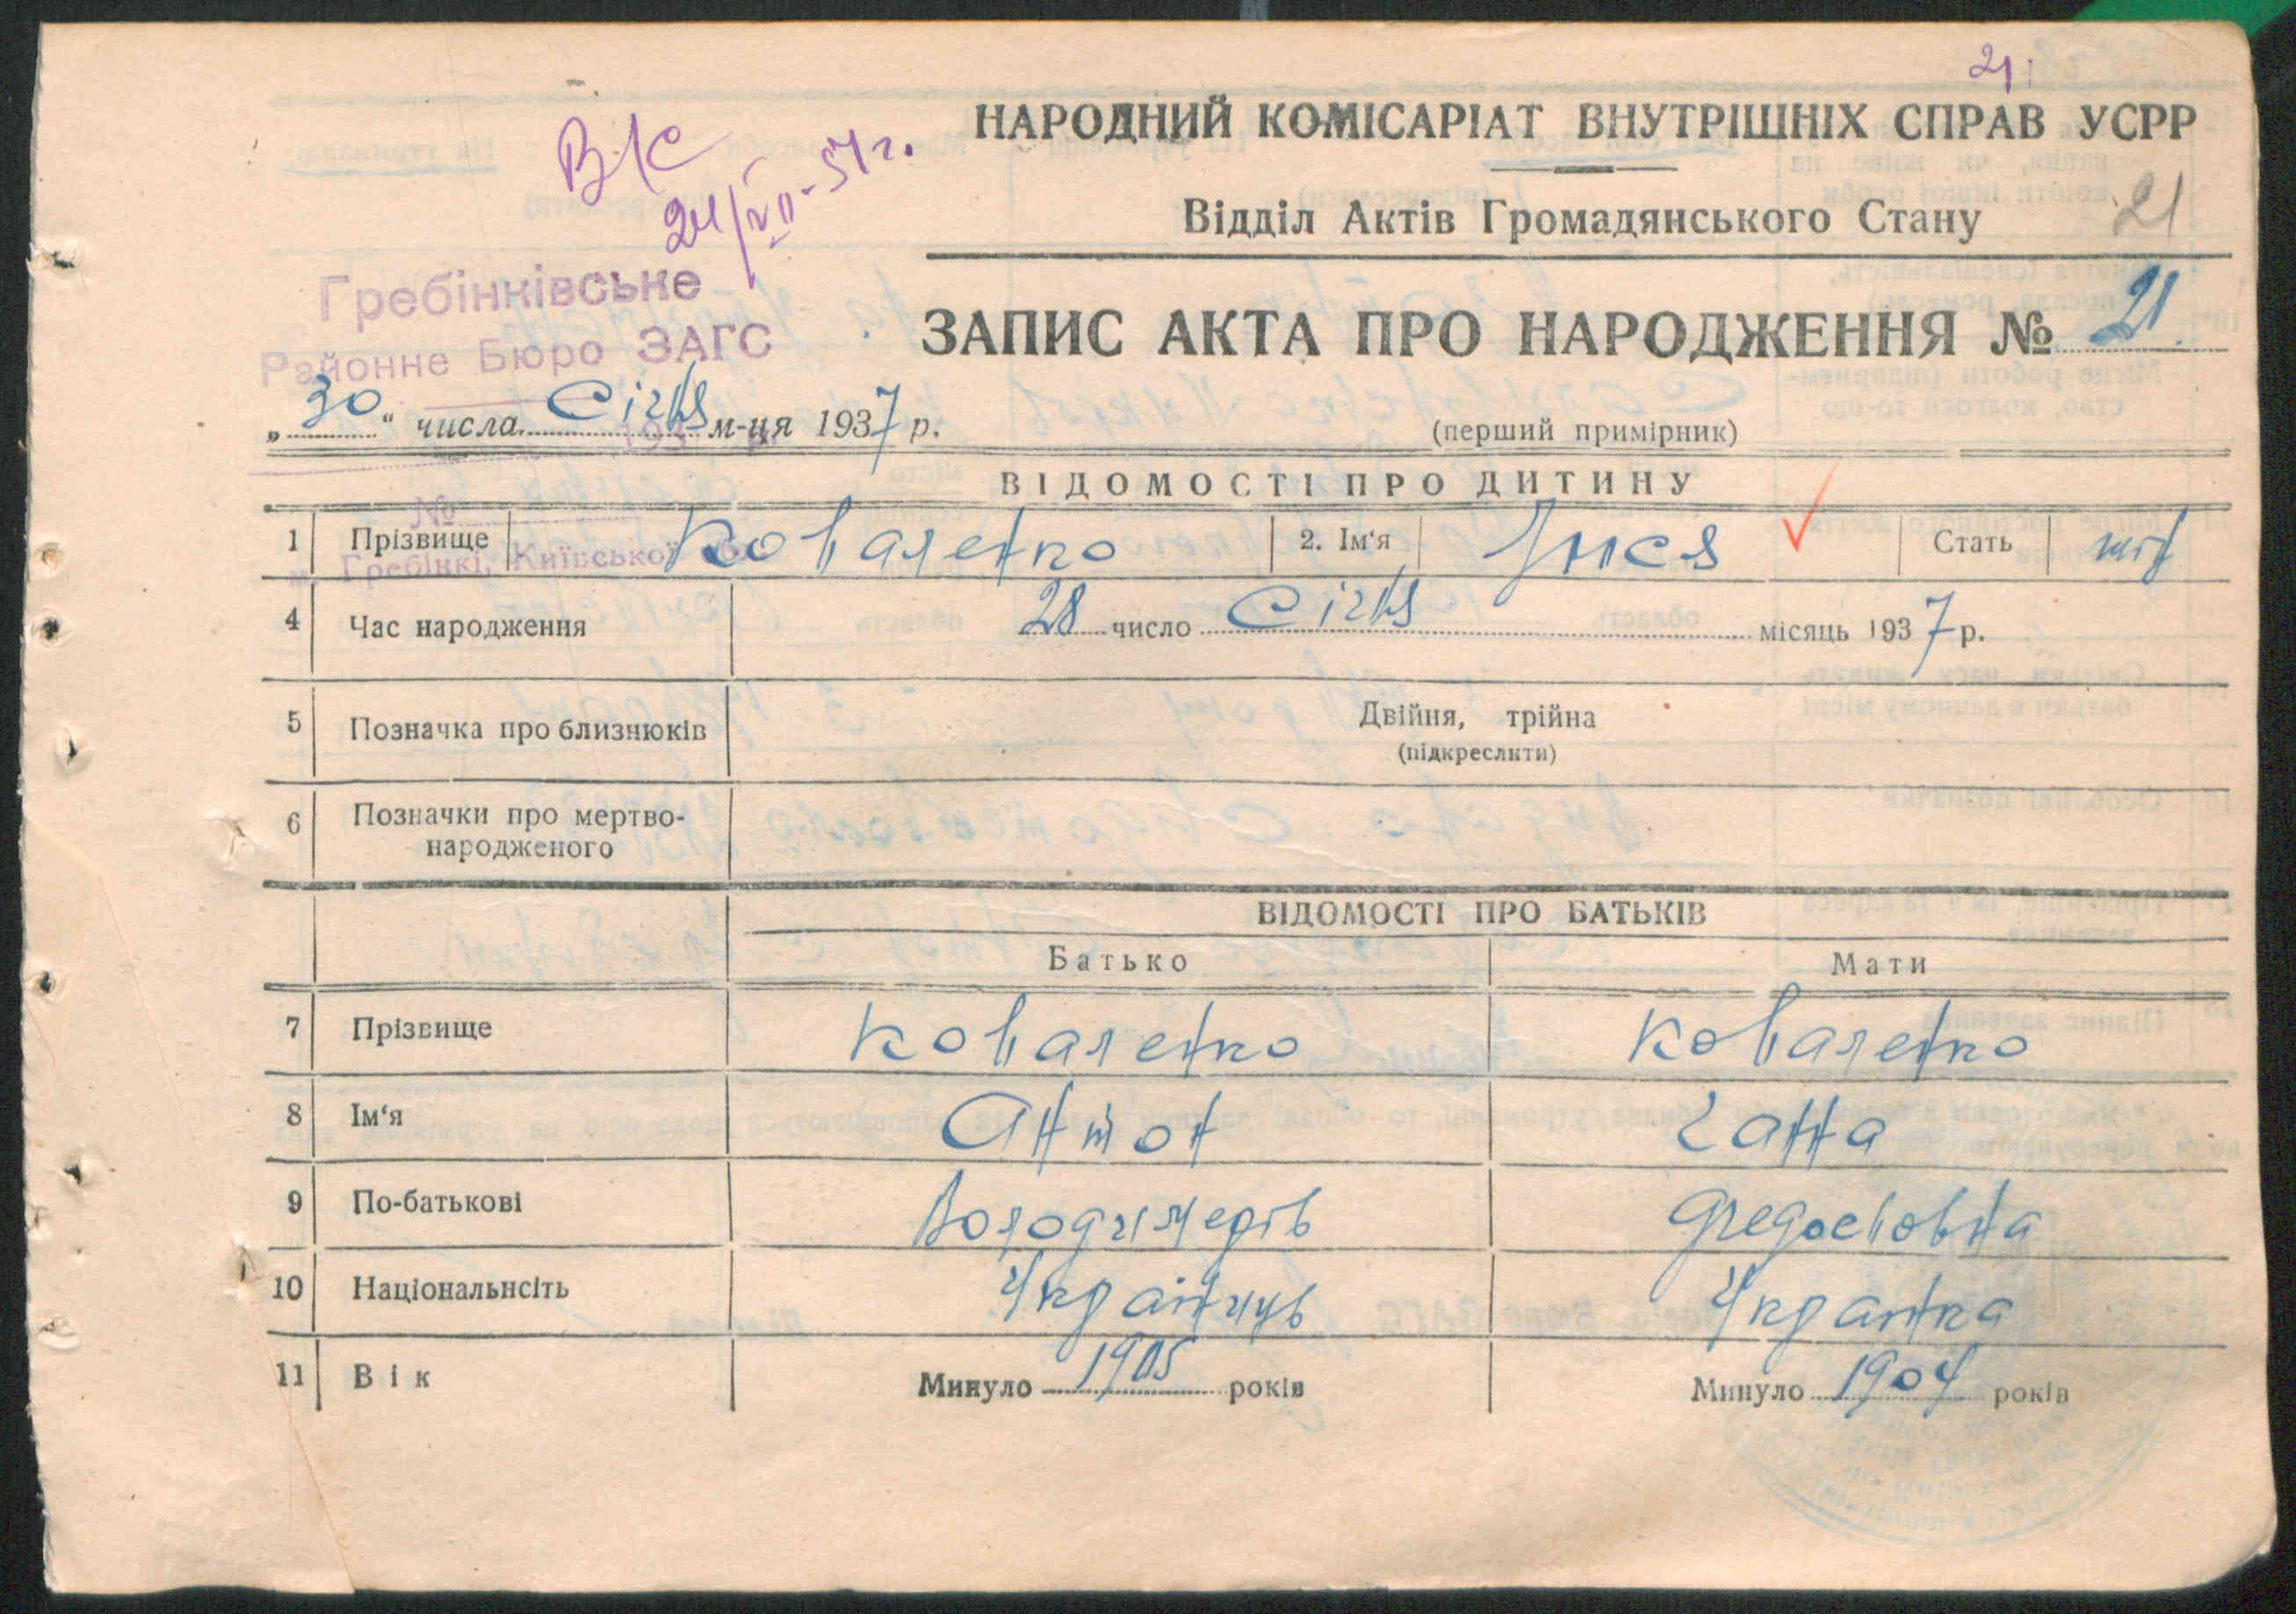 21
НАРОДНИЙ КОМІСАРІАТ ВНУТРІШНІХ СПРАВ УСРР
В/С
24/VII-57г.
Відділ Актів Громадянського Стану
21
Гребінківське
Районне Бюро ЗАГС
ЗАПИС АКТА ПРО НАРОДЖЕННЯ № 21
„30“ числа Січня м-ця 1937 р.
193
(перший примірник)
№
м. Гребінкі, Київської
ВІДОМОСТІ ПРО ДИТИНУ
1 Прізвище Коваленко 2. Ім‘я Стать
4 Час народження 28 число Січня місяць 1937 р.
5 Позначка про близнюків Двійня, трійна
(підкреслити)
6 Позначки про мертво-
народженого
ВІДОМОСТІ ПРО БАТЬКІВ
Батько Мати
7 Прізвище Коваленко Коваленко
8 Ім‘я Антон Ганна
9 По-батькові Володимерів
10 Національнсіть Українць Українка
11 Вік Минуло 1905 років Минуло 1904 років